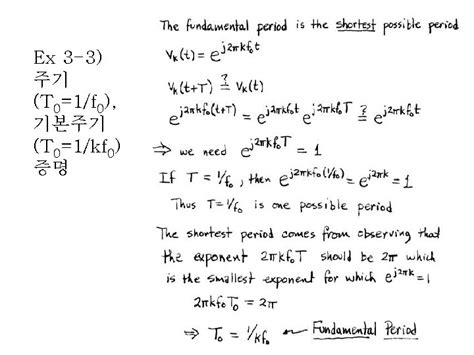 The fundamental period is the shortest possible period
Ex 3-3)
주기
(T₀=1/f₀),
기본주기
(T₀=1/kf₀)
증명
Vₖ(t) = e^{j2πkf₀t}
Vₖ(t+T) ≟ Vₖ(t)
e^{j2πkf₀(t+T)} = e^{j2πkf₀t} e^{j2πkf₀T} ≟ e^{j2πkf₀t}
⇒ we need e^{j2πkf₀T} = 1
If T = 1/f₀, then e^{j2πkf₀(1/f₀)} = e^{j2πk} = 1
Thus T = 1/f₀ is one possible period
The shortest period comes from observing that
the exponent 2πkf₀T should be 2π which
is the smallest exponent for which e^{j2πk} = 1
2πkf₀T₀ = 2π
⇒ T₀ = 1/kf₀ ← Fundamental Period